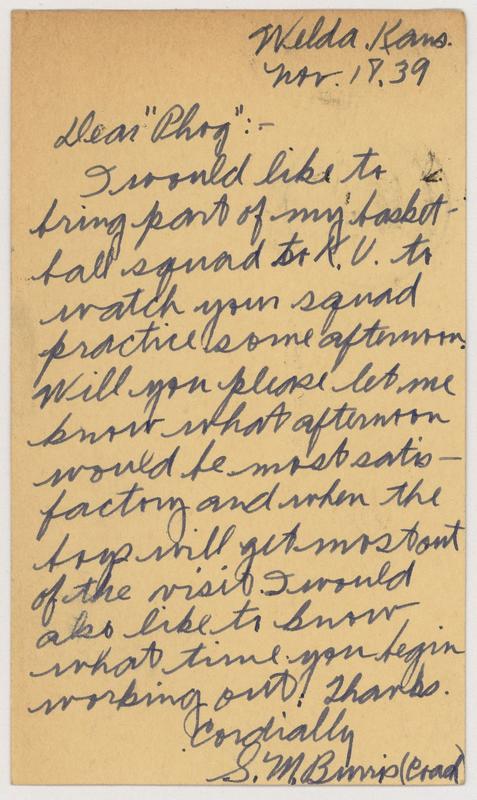 Welda, Kans.
Nov. 18, 39
Dear "Phog":-
I would like to
bring part of my basket-
ball squad to K.U. to
watch your squad
practice some afternoon.
Will you please let me
know what afternoon
would be most satis-
factory and when the
boys will get most out
of the visit. I would
also like to know
what time you begin
working out. Thanks.
Cordially
S. M. Burris (Coach)